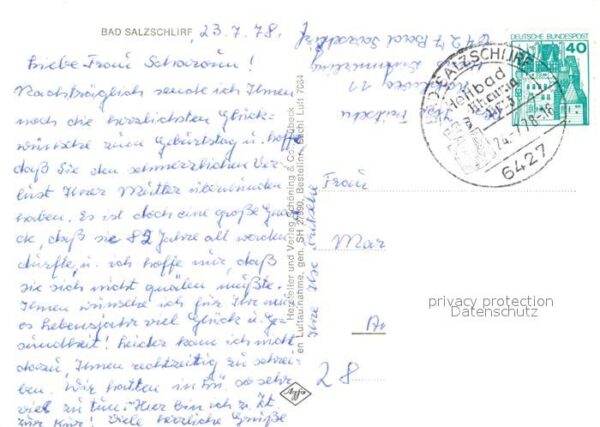 BAD SALZSCHLIRF
23.7.78.
Liebe Frau
Nachträglich sende ich Ihnen
noch die herzlichsten Glück-
wünsche zum Geburtstag u. hoffe,
daß Sie den schmerzlichen Ver-
lust Ihrer Mutter überwunden
haben. Es ist doch eine große Gna-
de, daß sie 82 Jahre alt werden
durfte, u. ich hoffe nur, daß
sie sich nicht quälen mußte.
Ihnen wünsche ich für Ihr
Lebensjahr viel Glück u. Ge-
sundheit! Leider kam ich nicht
dazu, Ihnen rechtzeitig zu schrei-
ben. Wir hatten in so sehr
viel zu tun. Hier bin ich z. Zt.
zur Kur! Viele herzliche Grüße
Ihre Ilse
6427 Bad Salzschlirf
Hersteller und Verlag Schöning & Co., Lübeck
en Luftaufnahme, gen. SH 27990, Bestellnr. Bschl Luft 7084
DEUTSCHE BUNDESPOST
40
BAD SALZSCHLIRF
Heilbad
24.-7.78-15
6427
Frau
Mar
An
28
privacy protection
Datenschutz